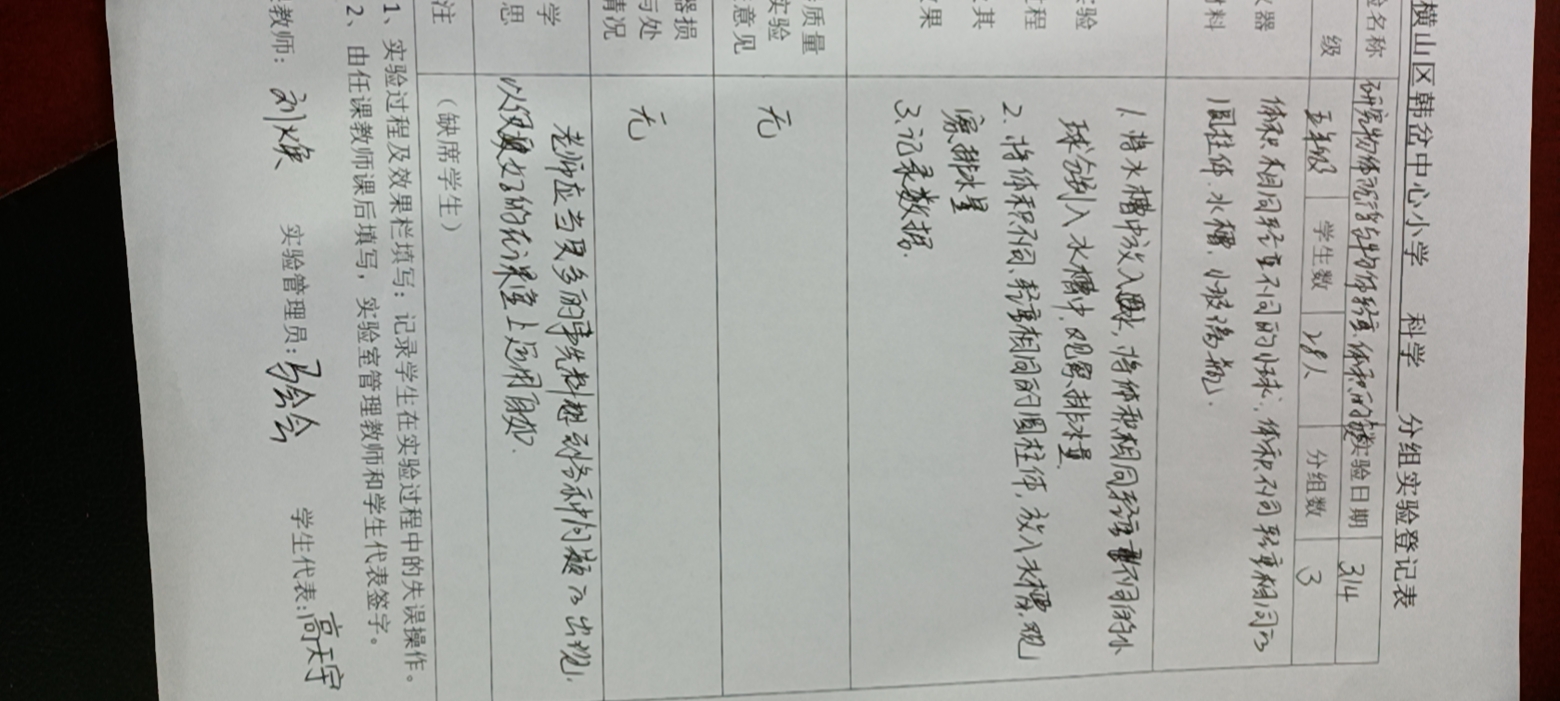 横山区韩岔中心小学 科学 分组实验登记表
验名称 研究物体沉浮与物体轻重、体积的 实验日期 3.14
级 五年级 学生数 28人 分组数 3
仪器 体积相同轻重不同的小球、体积不同轻重相同的
材料 圆柱体、水槽、小玻璃瓶.
实验 1. 将水槽中放入 水, 将体积相同轻重不同的小
过程 球分别入水槽中, 观察排水量
及其 2. 将体积不同、轻重相同的圆柱体, 放入水槽, 观
效果 察排水量
3. 记录数据.
质量
实验
意见
无
器损
与处
情况
无
学
思
老师应当更多的事先料想到各种问题的出现,
以便更好的在课堂上运用自如.
注 （缺席学生）
1、实验过程及效果栏填写：记录学生在实验过程中的失误操作。
2、由任课教师课后填写，实验室管理教师和学生代表签字。
教师： 刘焕 实验管理员： 马会会 学生代表： 高天宇